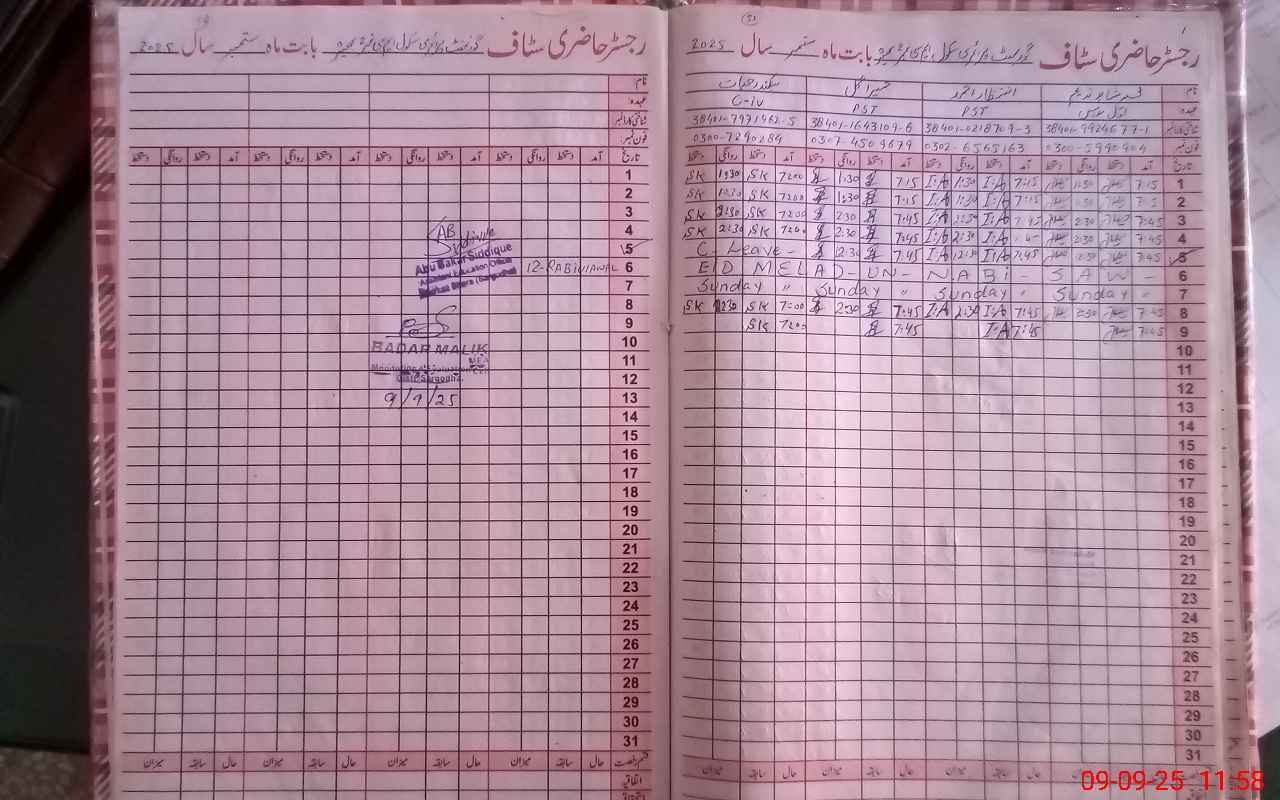 رجسٹر حاضری سٹاف گورنمنٹ پرائمری سکول بابت ماہ ستمبر سال 2025
نام
عہدہ
شناختی کارڈ نمبر
فون نمبر
تاریخ آمد دستخط روانگی دستخط آمد دستخط روانگی دستخط آمد دستخط روانگی دستخط آمد دستخط روانگی دستخط
1
2
3
4
5
6 12-RABIULAWAL
7
8
9
10
11
12
13
14
15
16
17
18
19
20
21
22
23
24
25
26
27
28
29
30
31
قسم رخصت حال سابقہ میزان حال سابقہ میزان حال سابقہ میزان حال سابقہ میزان
اتفاقیہ
AB Siddique
Abu Bakar Siddique
Assistant Education Officer
BADAR MALIK
MEA
Monitoring & Evaluation
Distt: Sargodha.
9/9/25
رجسٹر حاضری سٹاف گورنمنٹ پرائمری سکول بابت ماہ ستمبر سال 2025
نام
عہدہ PST PST C-iv
شناختی کارڈ نمبر 38401-9924677-1 38401-0218709-3 38401-1643109-6 38401-7971462-5
فون نمبر 0300-5990904 0302-6565163 0307-4509679 0300-7290284
تاریخ آمد دستخط روانگی دستخط آمد دستخط روانگی دستخط آمد دستخط روانگی دستخط آمد دستخط روانگی دستخط
1 7:15 1:30 7:15 I:A 1:30 I:A 7:15 1:30 7:00 SK 1:30 SK
2 7:15 1:30 7:15 I:A 1:30 I:A 7:15 1:30 7:00 SK 1:30 SK
3 7:45 2:30 7:45 I:A 2:30 I:A 7:45 2:30 7:00 SK 2:30 SK
4 7:45 2:30 I:A 2:30 I:A 7:45 2:30 7:00 SK 2:30 SK
5 7:45 12:30 7:45 I:A 12:30 I:A 7:45 12:30 C-Leave-
6 EID MELAD-UN-NABI-SAW-
7 Sunday " Sunday " Sunday " Sunday "
8 7:45 2:30 7:45 I:A 2:30 I:A 7:45 2:30 7:00 SK 2:30 SK
9 7:45 7:45 I:A 7:45 7:00 SK
10
11
12
13
14
15
16
17
18
19
20
21
22
23
24
25
26
27
28
29
30
31
حال سابقہ میزان حال سابقہ میزان حال سابقہ میزان
09-09-25 11:58